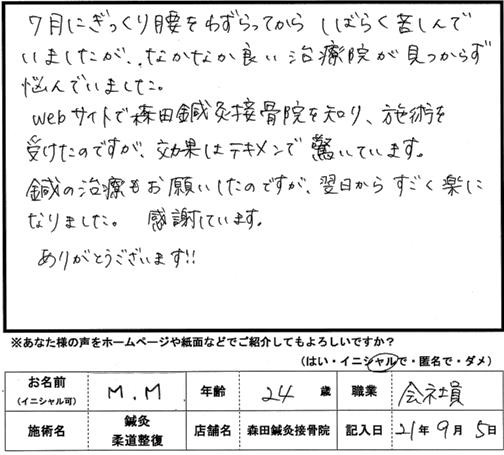 7月にぎっくり腰をわずらってから しばらく苦しんで
いましたが、なかなか良い治療院が見つからず
悩んでいました。
webサイトで森田鍼灸接骨院を知り、施術を
受けたのですが、効果はテキメンで驚いています。
鍼の治療もお願いしたのですが、翌日からすごく楽に
なりました。 感謝しています。
ありがとうございます!!
※あなた様の声をホームページや紙面などでご紹介してもよろしいですか？
（はい・イニシャルで・匿名で・ダメ）
お名前（イニシャル可） M.M 年齢 24 歳 職業 会社員
施術名 鍼灸 柔道整復 店舗名 森田鍼灸接骨院 記入日 21年 9月 5日